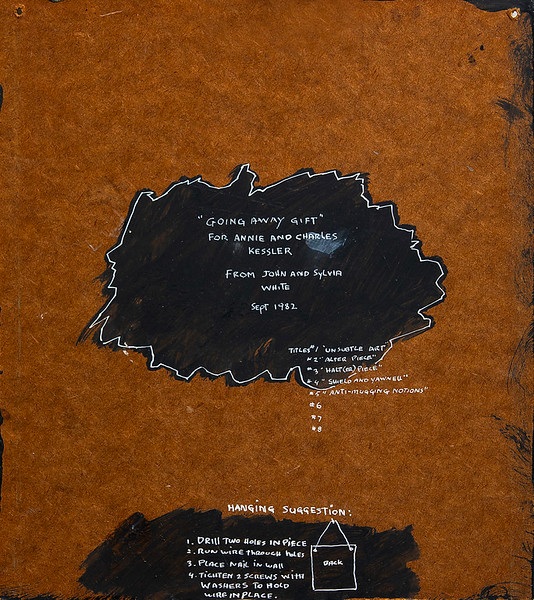 "GOING AWAY GIFT"
FOR ANNIE AND CHARLES
KESSLER
FROM JOHN AND SYLVIA
WHITE
SEPT 1982
TITLES #1 "UNSUBTLE ART"
#2 "ALTER PIECE"
#3 "HALT(ER) PIECE"
#4 "SHIELD AND YAWNELL"
#5 "ANTI-MUGGING NOTIONS"
#6
#7
#8
HANGING SUGGESTION:
1. DRILL TWO HOLES IN PIECE
2. RUN WIRE THROUGH HOLES
3. PLACE NAIL IN WALL
4. TIGHTEN 2 SCREWS WITH
WASHERS TO HOLD
WIRE IN PLACE.
BACK